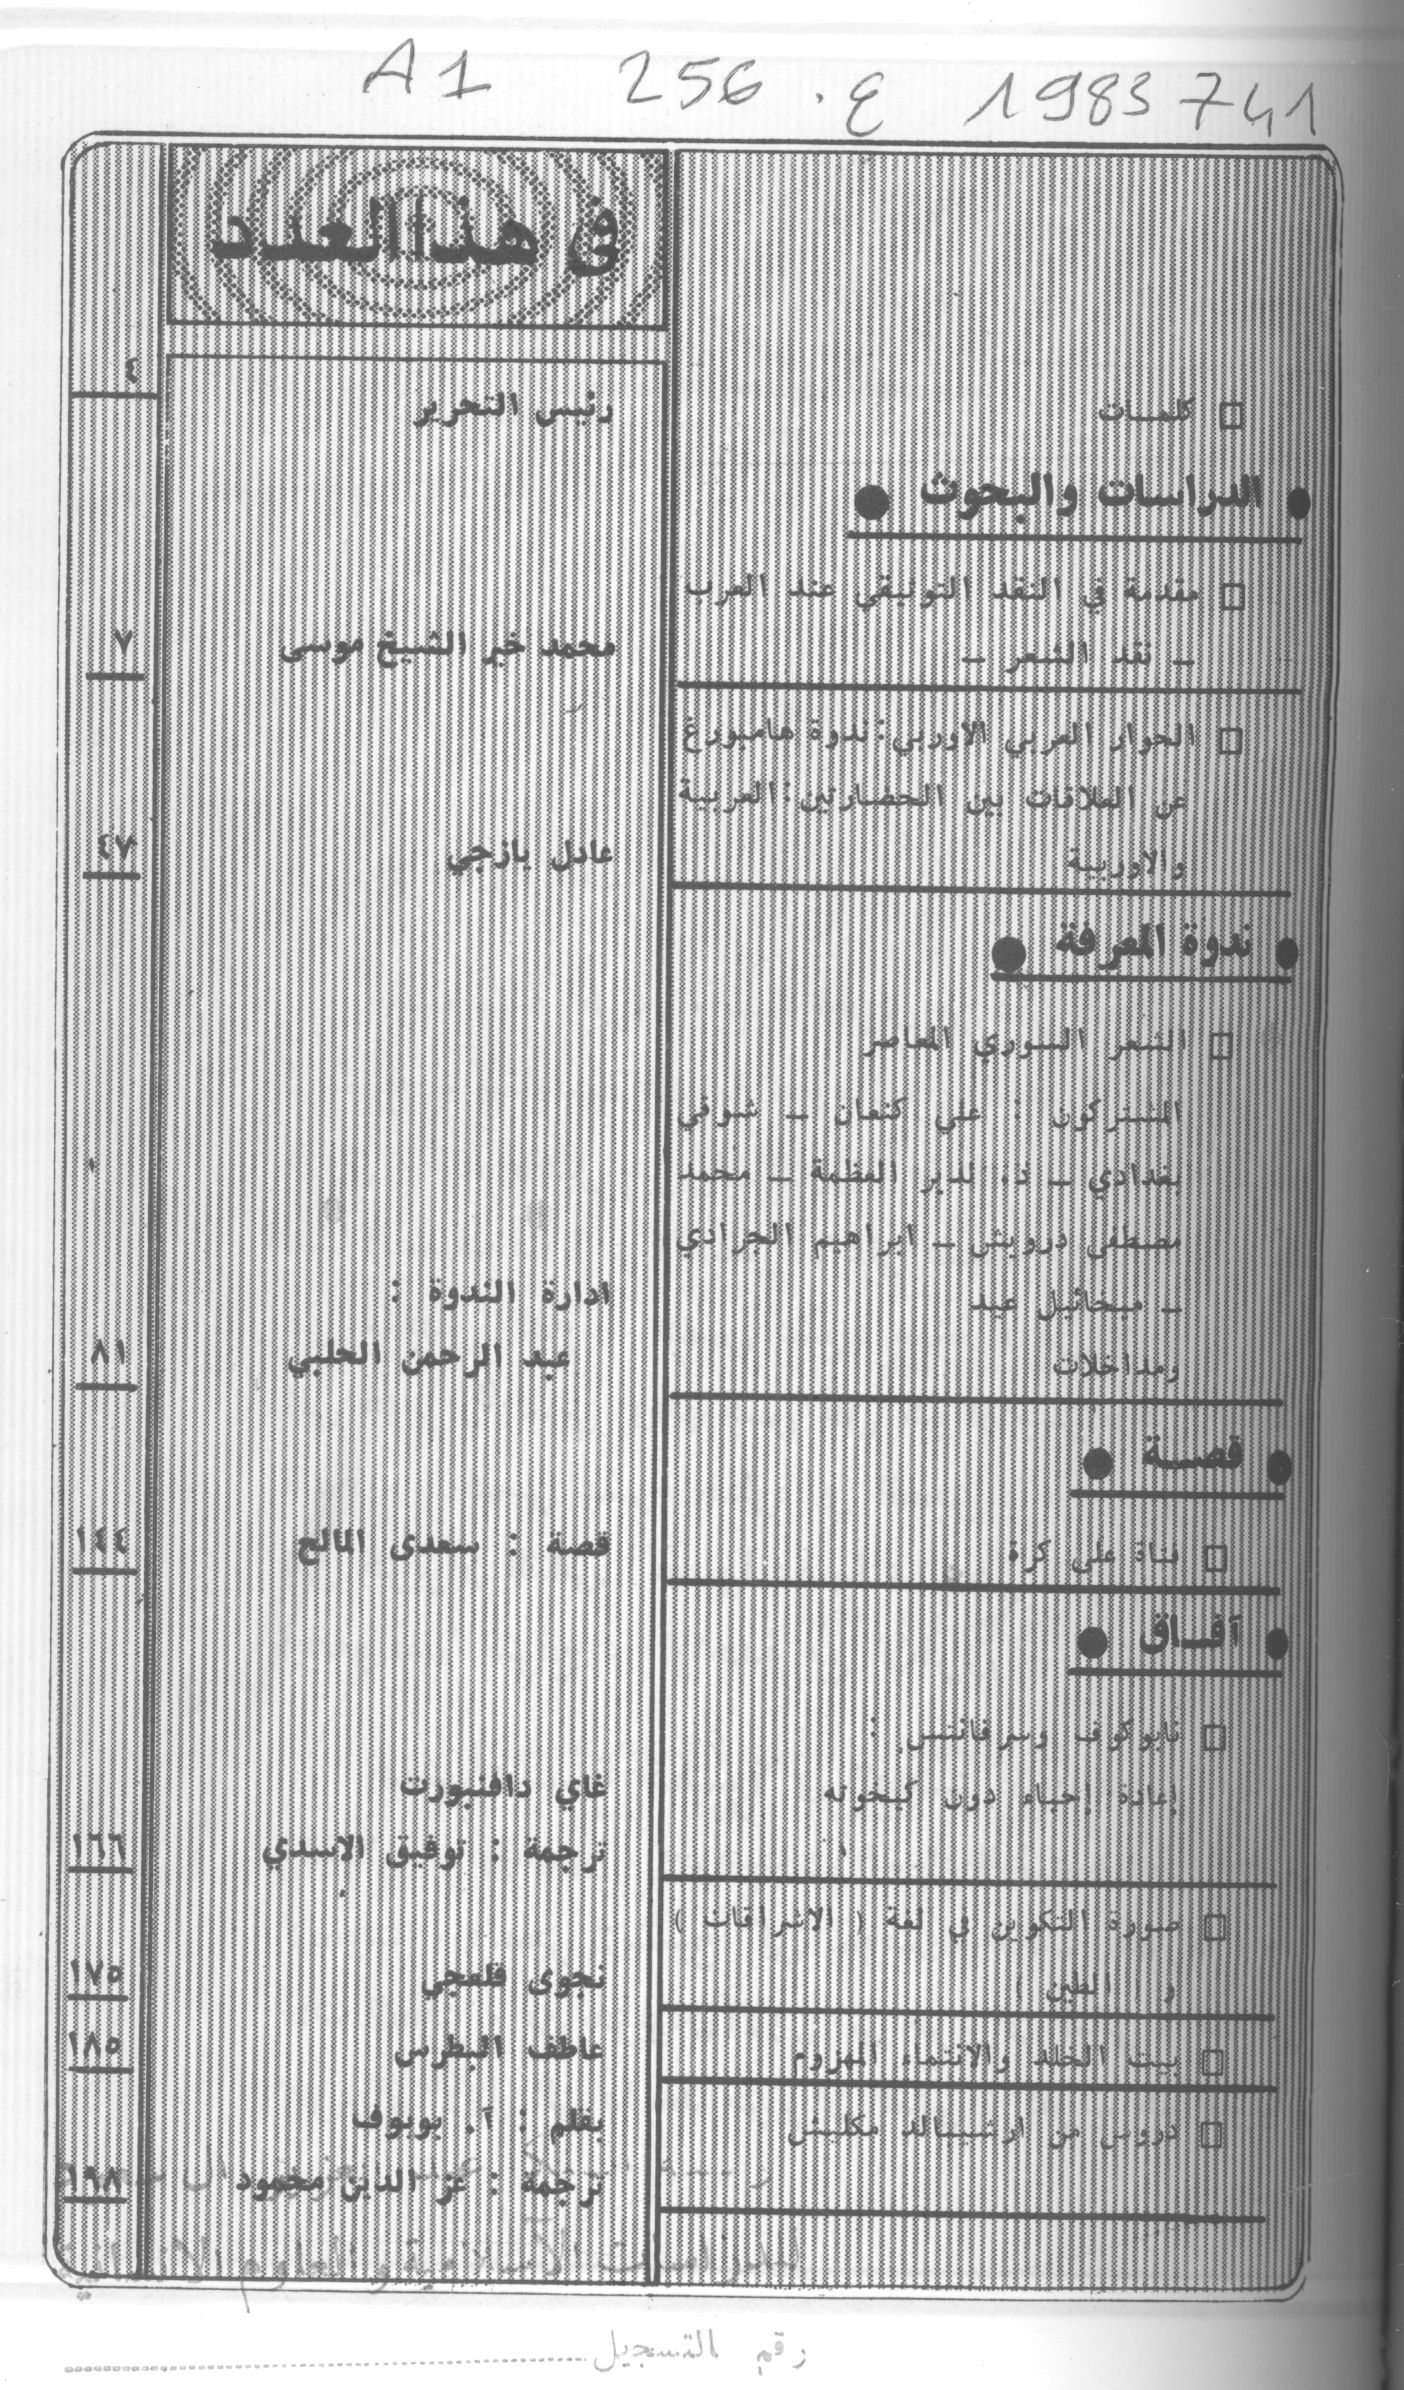 A1 256 .ع 1983 741
في هذا العدد
□ كلمات
رئيس التحرير
٤
● الدراسات والبحوث ●
□ مقدمة في النقد التوثيقي عند العرب
– نقد الشعر –
محمد خير الشيخ موسى
٧
□ الحوار العربي الاوربي : ندوة هامبورغ
عن العلاقات بين الحضارتين : العربية
والاوربية
عادل يازجي
٤٧
● ندوة المعرفة ●
□ الشعر السوري المعاصر
المشتركون : علي كنعان – شوقي
بغدادي – د. نذير العظمة – محمد
مصطفى درويش – ابراهيم الجرادي
– ميخائيل عيد
ومداخلات
ادارة الندوة :
عبد الرحمن الحلبي
٨١
● قصة ●
□ فتاة على كرة
قصة : سعدى المالح
١٤٤
● آفاق ●
□ نابوكوف وسرفانتس :
إعادة إحياء دون كيخوته
غاي دافنبورت
ترجمة : توفيق الاسدي
١٦٦
□ صورة التكوين في لغة ( الاشراقات )
و ( الطين )
نجوى قلعجي
١٧٥
□ بيت الخلد والانتماء المهزوم
عاطف البطرس
١٨٥
□ دروس من ارشيبالد مكليش
بقلم : آ. بوبوف
ترجمة : عز الدين محمود
١٩٨
للدراسات الإسلامية والعلوم الإنسانية
رقم التسجيل